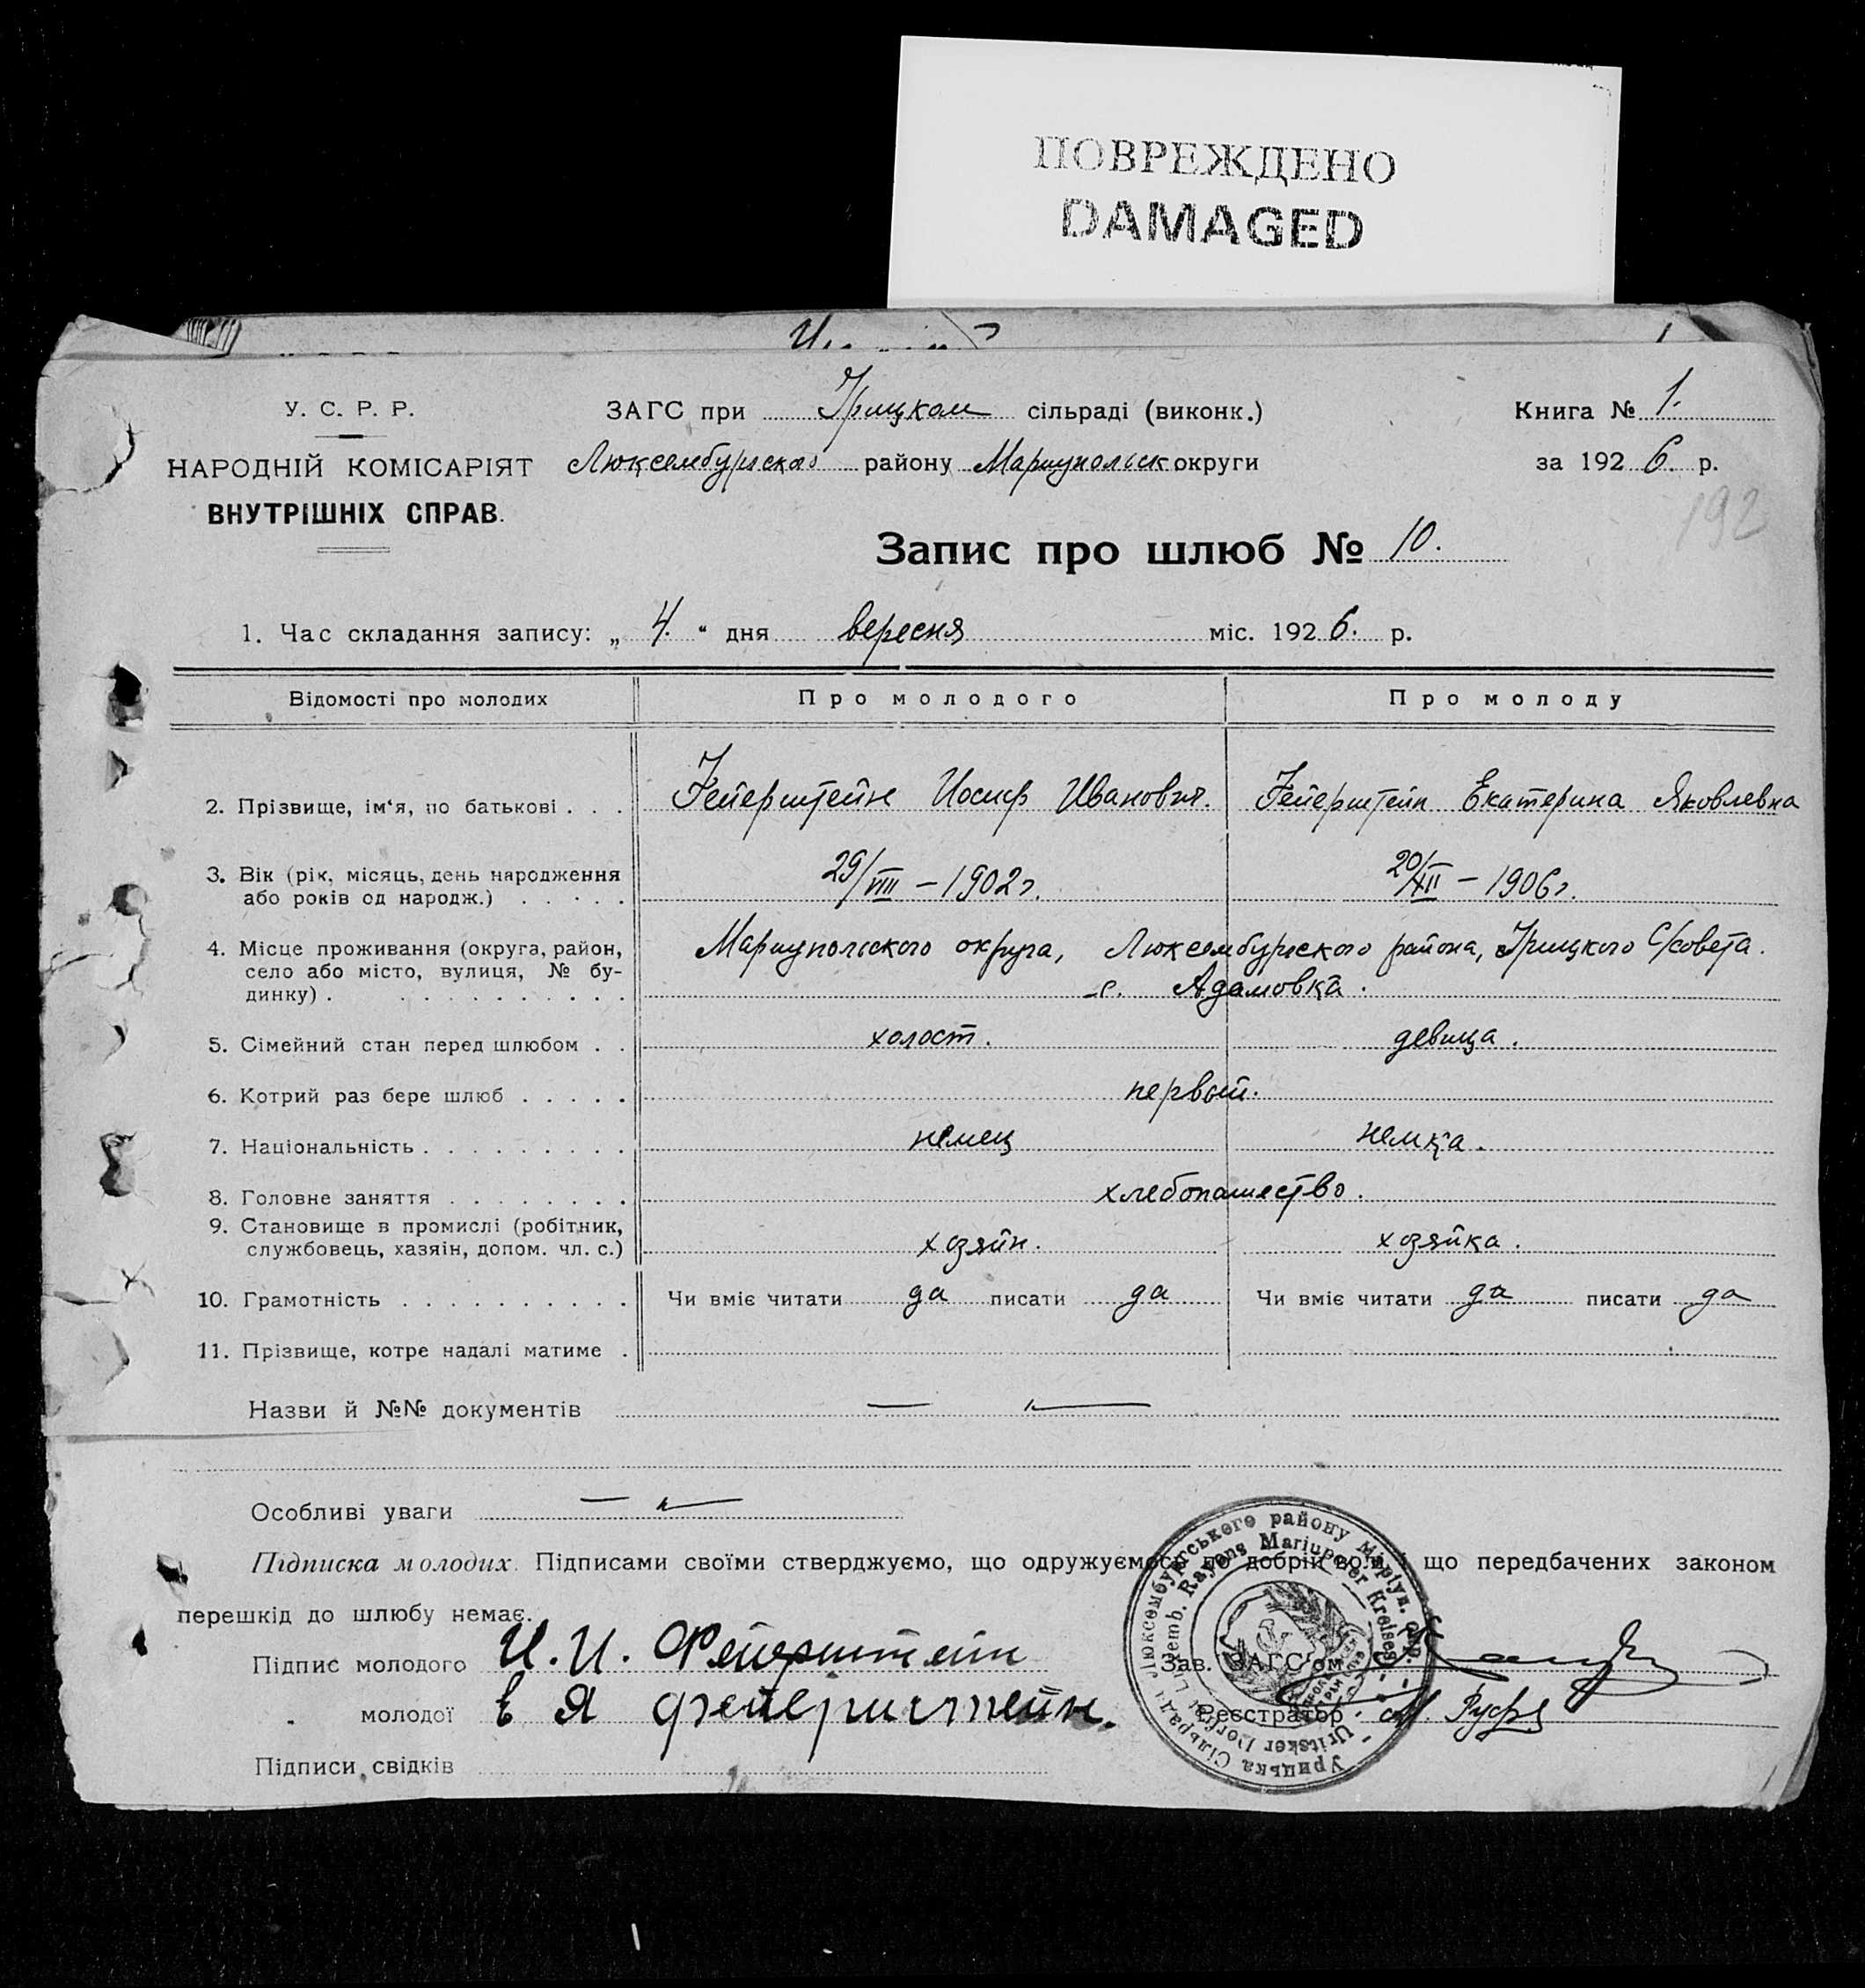 ПОВРЕЖДЕНО
DAMAGED
У. С. Р. Р.
НАРОДНІЙ КОМІСАРІЯТ
ВНУТРІШНІХ СПРАВ.
ЗАГС при Урицком сільраді (виконк.)
Люксембургского району Мариупольск округи
Книга № 1.
за 1926. р.
192
Запис про шлюб № 10.
1. Час складання запису: „ 4. “ дня вересня міс. 1926. р.
Відомості про молодих Про молодого Про молоду
2. Прізвище, ім‘я, по батькові . . . Фейерштейн Иосиф Иванович. Фейерштейн Екатерина Яковлевна
3. Вік (рік, місяць, день народження
або років од народж.) . . . . . 29/VIII – 1902 г. 20/XII – 1906 г.
4. Місце проживання (округа, район, Мариупольского округа, Люксембургского района, Урицкого С/совета.
село або місто, вулиця, № бу-
динку) . . . . . . . . . . . с. Адамовка.
5. Сімейний стан перед шлюбом . . холост. девица.
6. Котрий раз бере шлюб . . . . . первый.
7. Національність . . . . . . . . . немец немка.
8. Головне заняття . . . . . . . . хлебопашество.
9. Становище в промислі (робітник,
службовець, хазяїн, допом. чл. с.) хозяин. хозяйка.
10. Грамотність . . . . . . . . . . Чи вміє читати да писати да Чи вміє читати да писати да
11. Прізвище, котре надалі матиме .
Назви й №№ документів — „ —
Особливі уваги — „ —
Підписка молодих. Підписами своїми стверджуємо, що одружуємось по добрій волі і що передбачених законом
перешкід до шлюбу немає.
Підпис молодого И. И. Фейерштейн
Зав. ЗАГС'ом
„ молодої Е Я фейерштейн.
Реєстратор
Підписи свідків
Урицька Сільрада Люксембургського району Маріуп. окр.
Uritsker Dorfrat Luxemb. Rayons Mariupoler Kreises